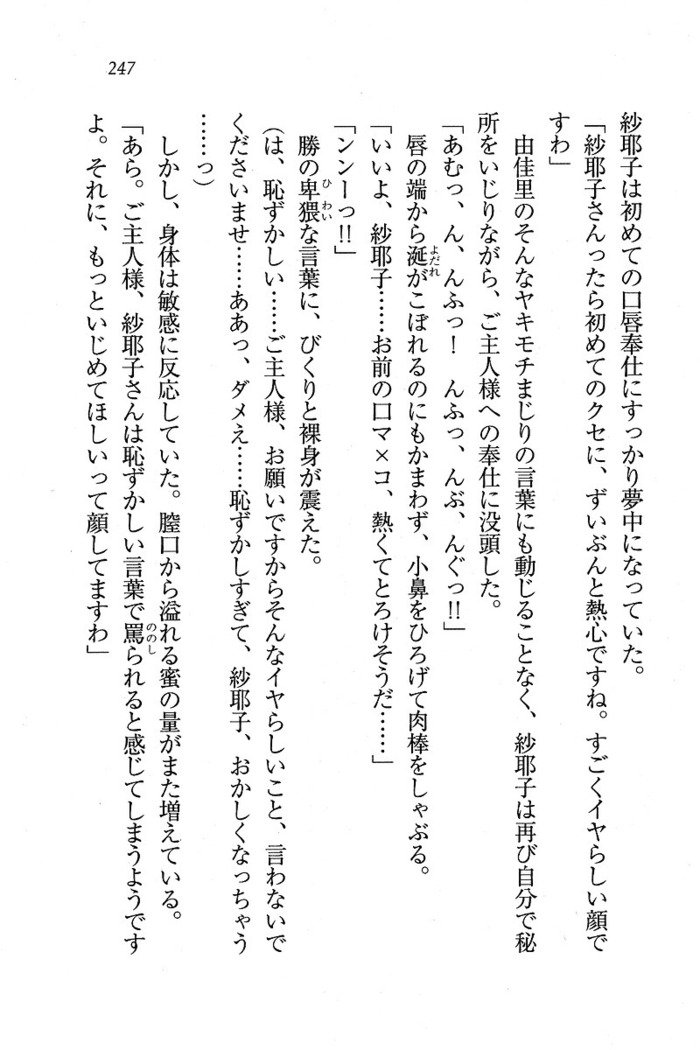 247
紗耶子は初めての口唇奉仕にすっかり夢中になっていた。
「紗耶子さんったら初めてのクセに、ずいぶんと熱心ですね。すごくイヤらしい顔で
すわ」
由佳里のそんなヤキモチまじりの言葉にも動じることなく、紗耶子は再び自分で秘
所をいじりながら、ご主人様への奉仕に没頭した。
「あむっ、ん、んふっ！　んふっ、んぶ、んぐっ!!」
唇の端から涎がこぼれるのにもかまわず、小鼻をひろげて肉棒をしゃぶる。
「いいよ、紗耶子……お前の口マ×コ、熱くてとろけそうだ……」
「ンンーっ!!」
勝の卑猥な言葉に、びくりと裸身が震えた。
（は、恥ずかしい……ご主人様、お願いですからそんなイヤらしいこと、言わないで
くださいませ……ああっ、ダメえ……恥ずかしすぎて、紗耶子、おかしくなっちゃう
……っ）
しかし、身体は敏感に反応していた。膣口から溢れる蜜の量がまた増えている。
「あら。ご主人様、紗耶子さんは恥ずかしい言葉で罵られると感じてしまうようです
よ。それに、もっといじめてほしいって顔してますわ」